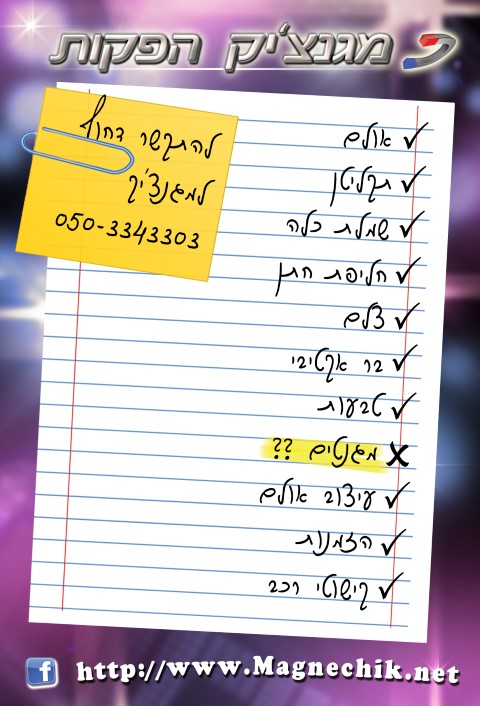 מגנצ'יק הפקות
להתקשר דחוף
למגנצ'יק
050-3343303
✓ אולם
✓ תקליטן
✓ שמלת כלה
✓ חליפת חתן
✓ צלם
✓ בר אקטיבי
✓ טבעות
X מגנטים ??
✓ עיצוב אולם
✓ הזמנות
✓ קישוטי רכב
f http://www.Magnechik.net